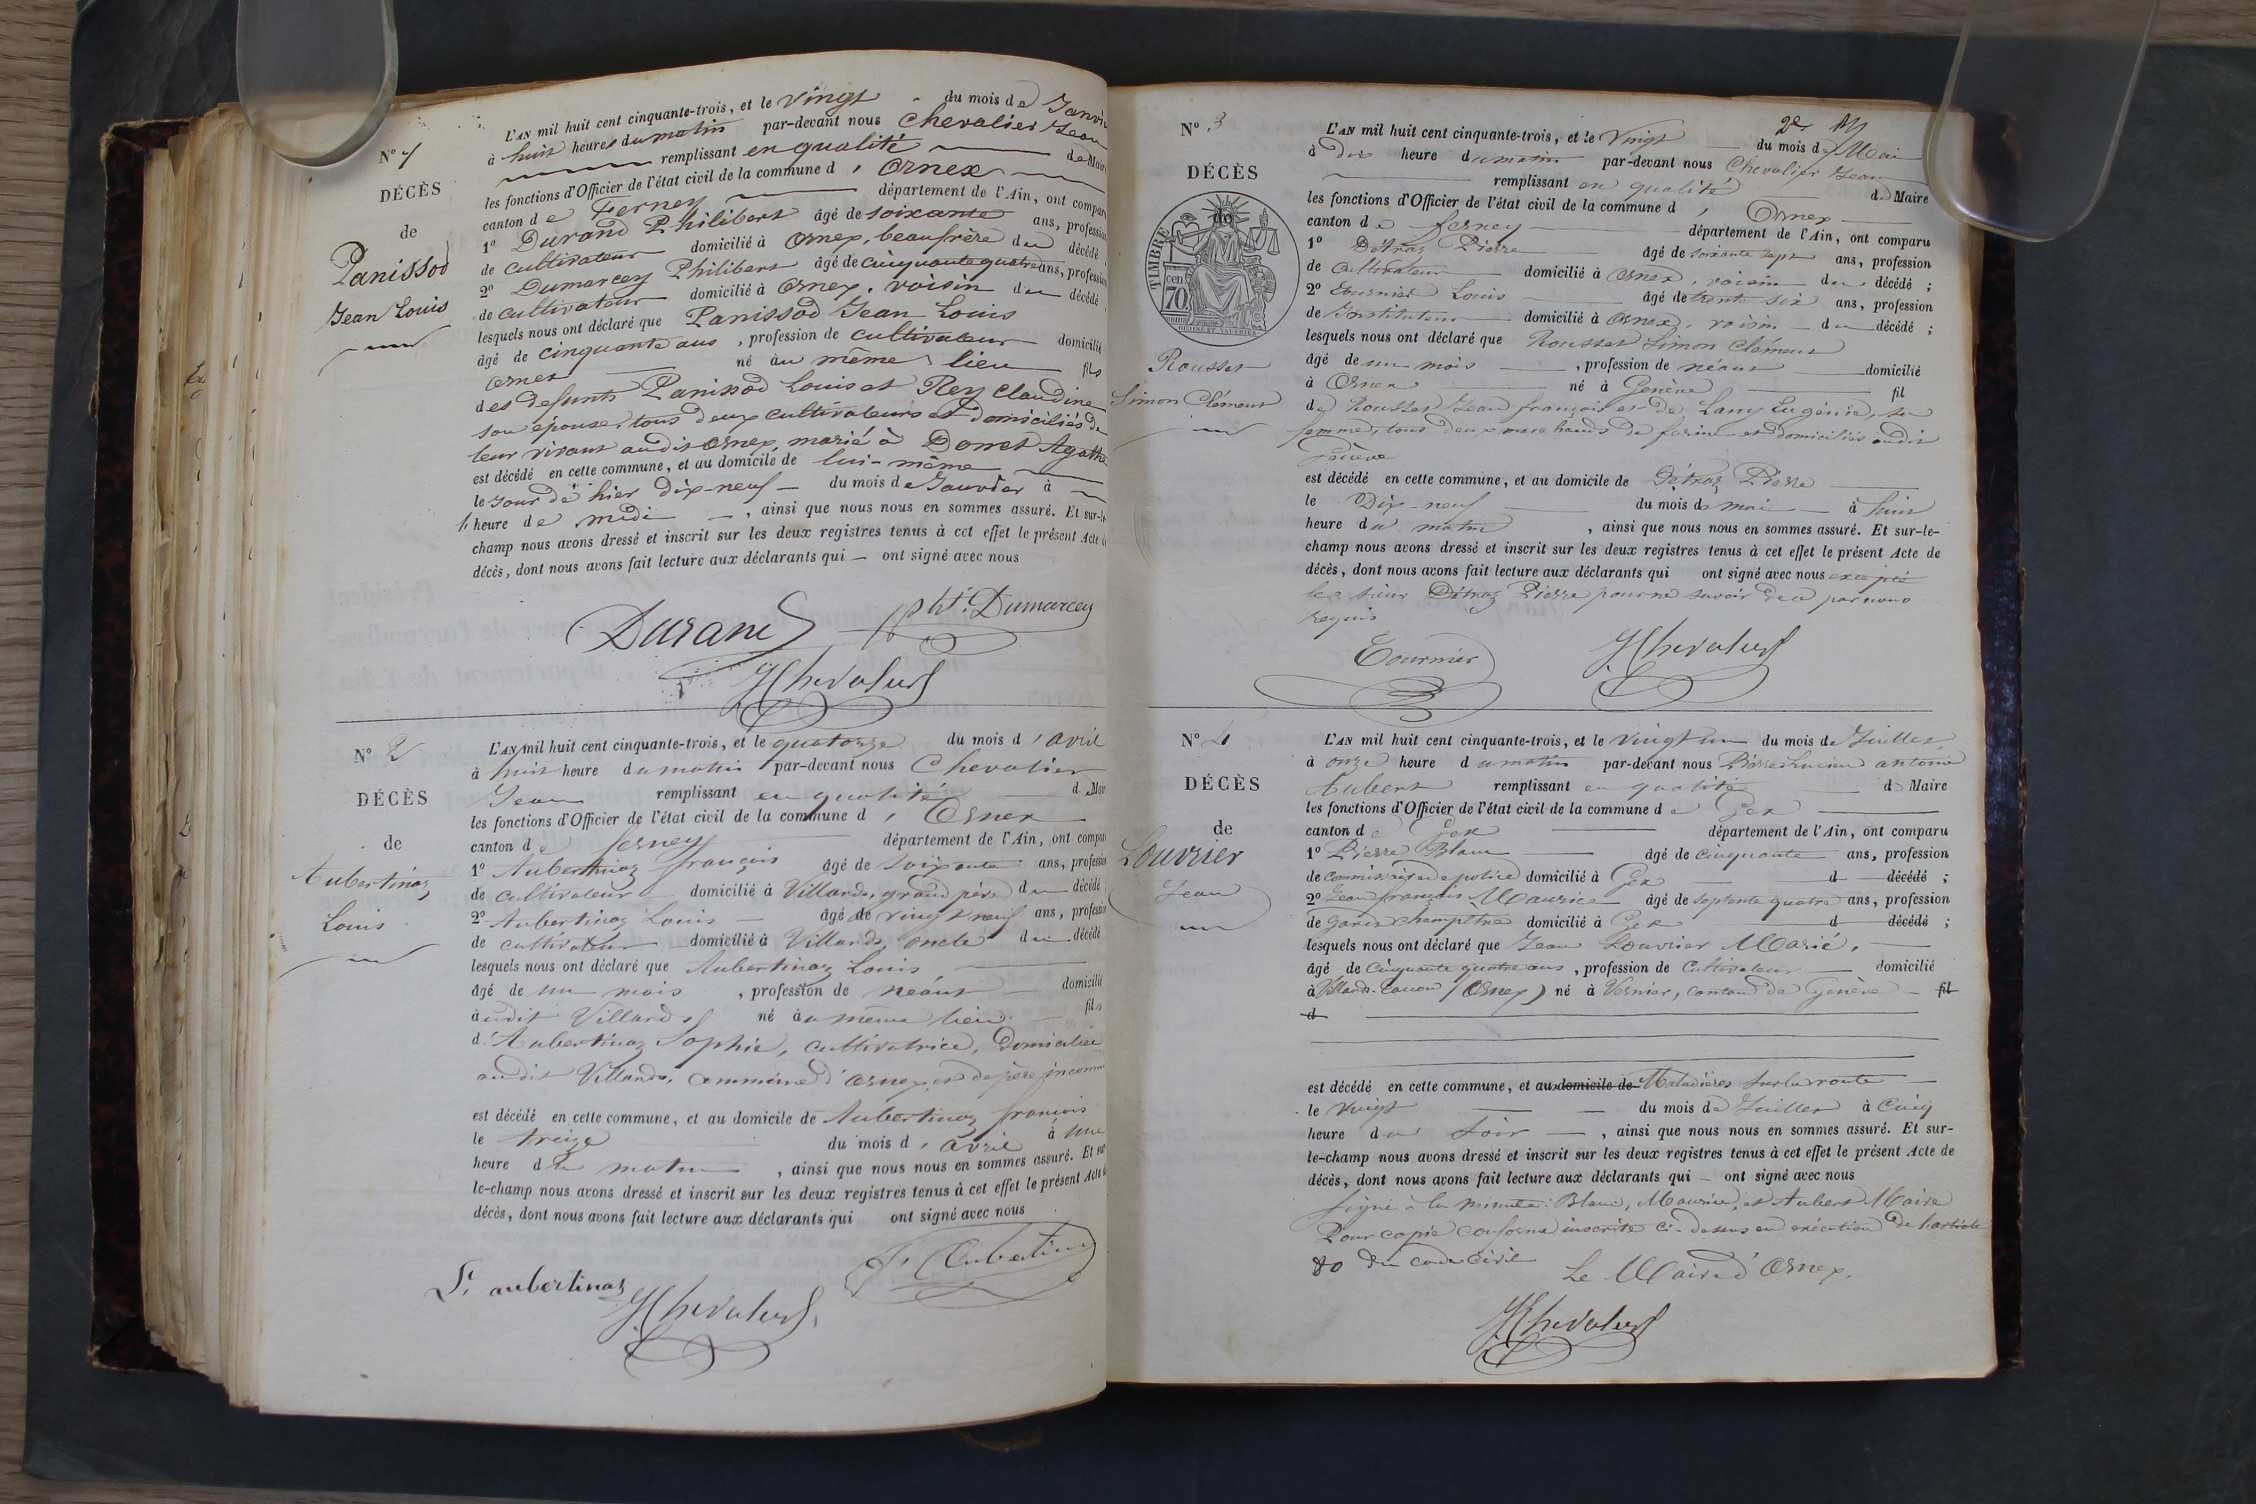 N° 1
DÉCÈS
de
Panissod
Jean Louis
L'AN mil huit cent cinquante-trois, et le vingt du mois de Janvier
à huit heures du matin par-devant nous Chevalier Jean
remplissant en qualité de Maire
les fonctions d'Officier de l'état civil de la commune d'Ornex
canton de Ferney département de l'Ain, ont comparu
1° Durand Philibert âgé de soixante ans, profession
de cultivateur domicilié à Ornex, beau frère du décédé
2° Dumarcey Philibert âgé de cinquante quatre ans, profession
de cultivateur domicilié à Ornex, voisin du décédé
lesquels nous ont déclaré que Panissod Jean Louis
âgé de cinquante ans, profession de cultivateur domicilié
Ornex né au même lieu fils
des defunts Panissod Louis et Rey Claudine
son épouse, tous deux cultivateurs et domiciliés de
leur vivant audit Ornex, marié à Donet Agathe
est décédé en cette commune, et au domicile de lui-même
le jour de hier dix-neuf du mois de Janvier à
heure de midi, ainsi que nous nous en sommes assuré. Et sur-le-
champ nous avons dressé et inscrit sur les deux registres tenus à cet effet le présent Acte de
décès, dont nous avons fait lecture aux déclarants qui ont signé avec nous
Durand Pht. Dumarcey
J Chevalier
N° 2
DÉCÈS
de
Aubertinaz
Louis
L'AN mil huit cent cinquante-trois, et le quatorze du mois d'avril
à huit heure du matin par-devant nous Chevalier
Jean remplissant en qualité de Maire
les fonctions d'Officier de l'état civil de la commune d'Ornex
canton de ferney département de l'Ain, ont comparu
1° Aubertinaz françois âgé de soixante ans, profession
de cultivateur domicilié à Villards, grand père du décédé
2° Aubertinaz Louis âgé de vingt neuf ans, profession
de cultivateur domicilié à Villards, oncle du décédé
lesquels nous ont déclaré que Aubertinaz Louis
âgé de un mois, profession de néant domicilié
audit Villards né au même lieu fils
d'Aubertinaz Sophie, cultivatrice, domiciliée
audit Villards, commune d'Ornex et de père inconnu
est décédé en cette commune, et au domicile de Aubertinaz françois
le treize du mois d'avril à une
heure du matin, ainsi que nous nous en sommes assuré. Et sur
le-champ nous avons dressé et inscrit sur les deux registres tenus à cet effet le présent Acte de
décès, dont nous avons fait lecture aux déclarants qui ont signé avec nous
L. aubertinaz F. Aubertinaz
J Chevalier
N° 3
DÉCÈS
de
TIMBRE
70
Rousset
Simon Clément
L'AN mil huit cent cinquante-trois, et le vingt du mois de Mai
à dix heure du matin par-devant nous Chevalier Jean
remplissant en qualité de Maire
les fonctions d'Officier de l'état civil de la commune d'Ornex
canton de ferney département de l'Ain, ont comparu
1° Détraz Pierre âgé de soixante sept ans, profession
de cultivateur domicilié à Ornex, voisin du décédé ;
2° Tournier Louis âgé de trente six ans, profession
de Instituteur domicilié à Ornex, voisin du décédé ;
lesquels nous ont déclaré que Rousset Simon Clément
âgé de un mois, profession de néant domicilié
à Ornex né à Genève fil
de Rousset Jean françois et de Lamy Eugénie, sa
femme, tous deux marchands de farine et domiciliés audit
Genève
est décédé en cette commune, et au domicile de Détraz Pierre
le Dix-neuf du mois de mai à huit
heure du matin, ainsi que nous nous en sommes assuré. Et sur-le-
champ nous avons dressé et inscrit sur les deux registres tenus à cet effet le présent Acte de
décès, dont nous avons fait lecture aux déclarants qui ont signé avec nous excepté
le sieur Détraz Pierre pour ne savoir de ce par nous
requis
Tournier J Chevalier
N° 4
DÉCÈS
de
Louvrier
Jean
L'AN mil huit cent cinquante-trois, et le vingt un du mois de Juillet,
à onze heure du matin par-devant nous Pierre Lucien antoine
Aubert remplissant en qualité de Maire
les fonctions d'Officier de l'état civil de la commune de Gex
canton de Gex département de l'Ain, ont comparu
1° Pierre Blanc âgé de cinquante ans, profession
de commissaire de police domicilié à Gex d décédé ;
2° Jean françois Maurice âgé de septante quatre ans, profession
de garde champêtre domicilié à Gex d décédé ;
lesquels nous ont déclaré que Jean Louvrier Marié,
âgé de Cinquante quatre ans, profession de Cultivateur domicilié
à Villards-Tacon (Ornex) né à Vernier, canton de Genève fil
d
est décédé en cette commune, et au domicile de Maladières sur la route
le vingt du mois de Juillet à Cinq
heure du soir, ainsi que nous nous en sommes assuré. Et sur-
le-champ nous avons dressé et inscrit sur les deux registres tenus à cet effet le présent Acte de
décès, dont nous avons fait lecture aux déclarants qui ont signé avec nous
Signé à la minute : Blanc, Maurice, et Aubert Maire
Pour copie conforme inscrite ci-dessus en exécution de l'article
80 du code civil
Le Maire d'Ornex,
J Chevalier